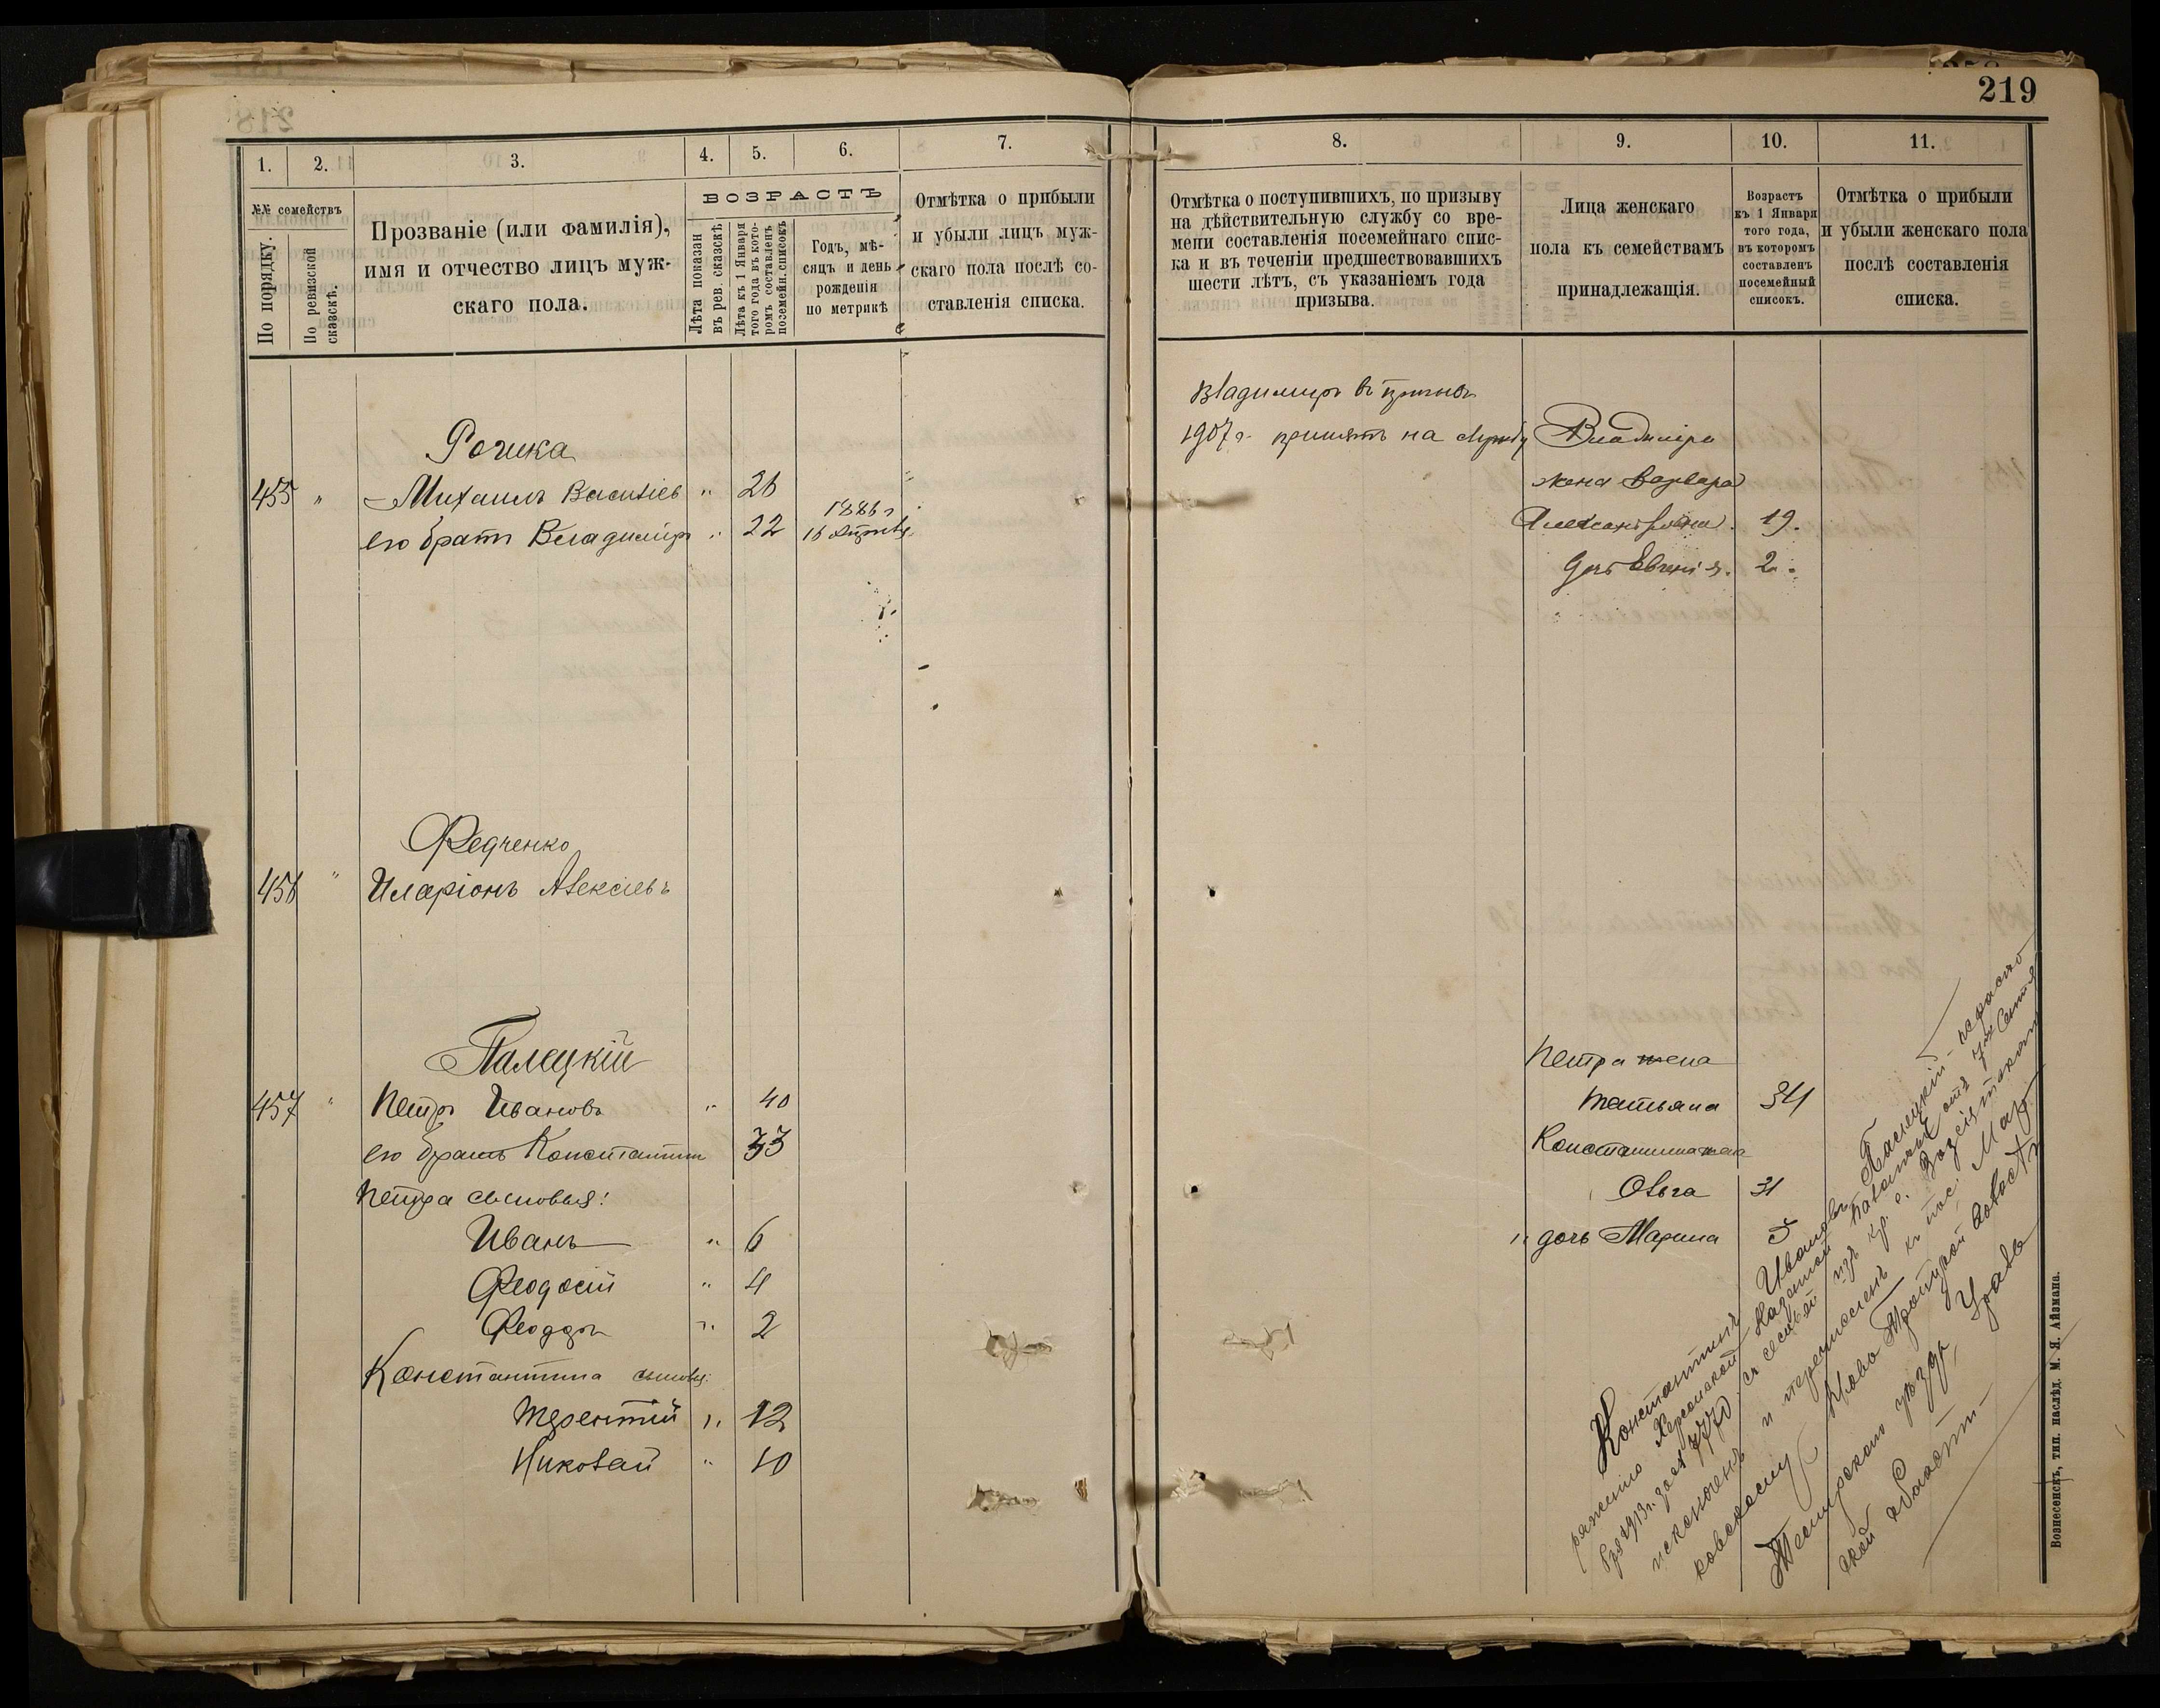 219
1. 2. 3. 4. 5. 6. 7.
№№ семействъ
По порядку.
По ревизской сказскѣ.
Прозваніе (или фамилія),
имя и отчество лицъ муж-
скаго пола.
ВОЗРАСТЪ
Лѣта показан въ рев. сказскѣ
Лѣта къ 1 Января того года въ кото-
ромъ составленъ посемейн. списокъ
Годъ, мѣ-
сяцъ и день
рожденія
по метрикѣ
Отмѣтка о прибыли
и убыли лицъ муж-
скаго пола послѣ со-
ставленія списка.
Рошка
455 " Михаилъ Василіев " 26
его братъ Владиміръ " 22 1886 г
16
Федченко
456 " Иларіонъ Алексіевъ
Палецкій
457 " Петръ Ивановъ " 40
его братъ Константин 33
Петра сыновья:
Иванъ " 6
Феодосій " 4
Феодоръ " 2
Константина сыновья:
Терентій " 12
Николай " 10
8. 9. 10. 11.
Отмѣтка о поступившихъ, по призыву
на дѣйствительную службу со вре-
мени составленія посемейнаго спис-
ка и въ теченіи предшествовавшихъ
шести лѣтъ, съ указаніемъ года
призыва.
Лица женскаго
пола къ семействамъ
принадлежащія.
Возрастъ
къ 1 Января
того года,
въ которомъ
составленъ
посемейный
списокъ.
Отмѣтка о прибыли
и убыли женскаго пола
послѣ составленія
списка.
Владимиръ въ призывъ
1907 г. принятъ на службу
Владиміра
жена Варвара
Александровна. 19.
дочь Евгенія. 2.
Петра жена
Татьяна 34
Константина жена
Ольга 31
" дочь Марина 5
Константинъ Ивановъ Палецкій
ряженію Херсонской Казенной Палаты отъ
1913 г. за № 7770 съ семьей изъ кр. с.
исключенъ и перечисленъ къ пос.
ковскому Ново Троицкой волости
Темирскаго уѣзда, Ураль
ской области.
Вознесенскъ, тип. наслѣд. М. Я. Айзмана.